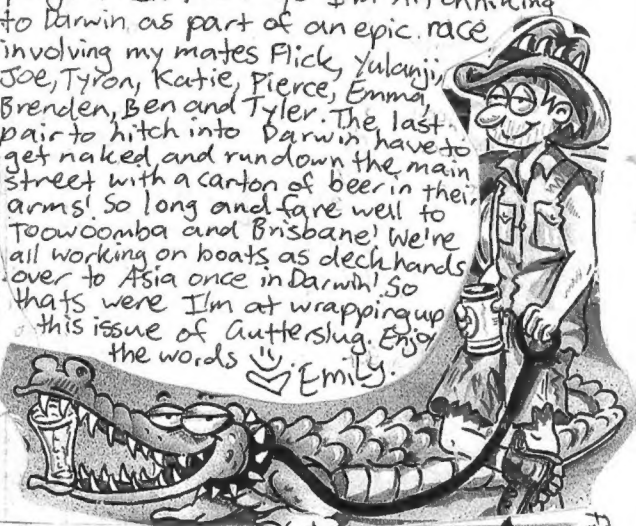 I'm hitchhiking
to Darwin as part of an epic race
involving my mates Flick, Yulanji,
Joe, Tyron, Katie, Pierce, Emma,
Brenden, Ben and Tyler. The last
pair to hitch into Darwin have to
get naked and run down the main
street with a carton of beer in their
arms! So long and fare well to
Toowoomba and Brisbane! We're
all working on boats as deckhands
over to Asia once in Darwin! So
thats were I'm at wrapping up
this issue of Gutterslug. Enjoy
the words
Emily.